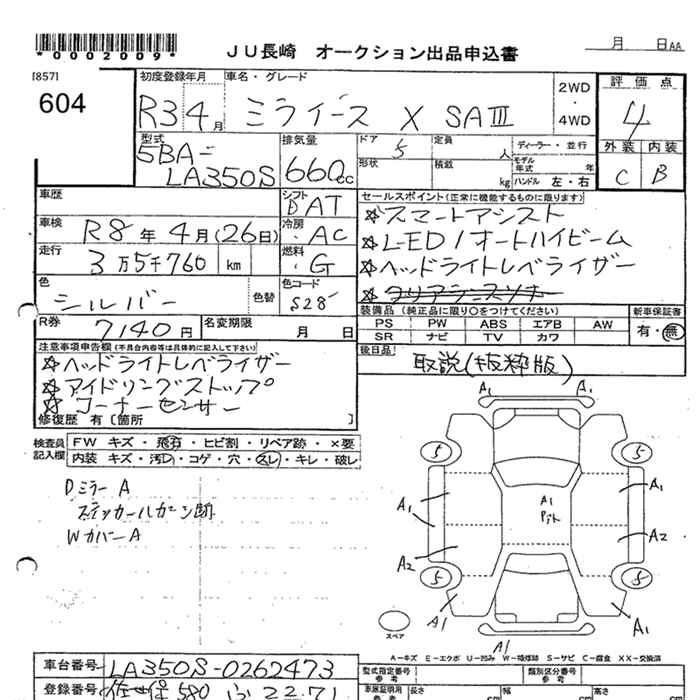 *0002009*
JU長崎 オークション出品申込書
月 日AA
[857]
604
初度登録年月 車名・グレード
R3 4月 ミライース X SAⅢ
2WD
・
4WD
評価点
4
外装 内装
C B
型式
5BA-
LA350S
排気量
660cc
ドア 5 定員 人
形状 積載 kg
ディーラー・並行
モデル年式 年
ハンドル 左・右
車歴
シフト
AT
車検 R8年 4月(26日)
冷房 AC
走行 3万5千760 km
燃料 G
色 シルバー 色替
色カラーコード S28
R券 7140円 名変期限 月 日
セールスポイント(正常に機能するものに限ります)
☆スマートアシスト
☆LED/オートハイビーム
☆ヘッドライトレベライザー
装備品(純正品に限り○をつけてください)
PS PW ABS エアB AW
SR ナビ TV カワ
新車保証書
有・無
後日品
取説(抜粋版)
注意事項申告欄(不具合内容等は具体的に記入して下さい)
☆ヘッドライトレベライザー
☆アイドリングストップ
☆コーナーセンサー
修復歴 有〔箇所 〕
検査員記入欄
FW キズ・飛石・ヒビ割・リペア跡・×要
内装 キズ・汚レ・コゲ・穴・スレ・キレ・破レ
Dミラー A
ステッカーハガシ跡
Wカバー A
A1 A1
5 5
A1 A1 A1
Pit
A2 A2
5 5
A1 A1
A1
スペア
A-キズ E-エクボ U-凹み W-補修跡 S-サビ C-腐食 XX-交換済
車台番号 LA350S-0262473
登録番号 佐世保 580 ふ 22 71
型式指定番号
参考
類別区分番号
参考
車庫証明用
参考
長さ cm 幅 cm 高さ cm